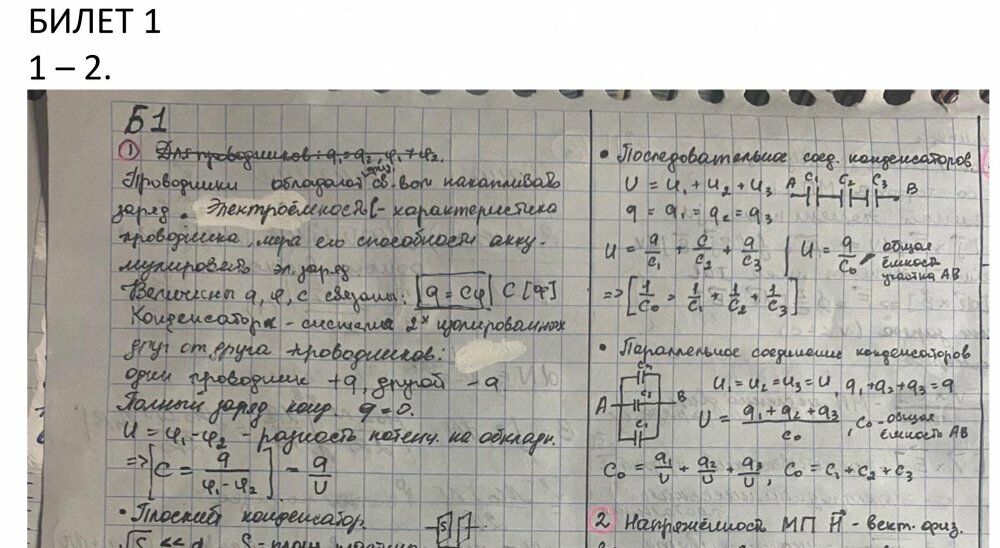 БИЛЕТ 1
1 – 2.
Б1
① Для проводников: q₁=q₂, φ₁≠φ₂.
Проводники обладают св-вом накапливать
заряд. Электроёмкость - характеристика
проводника, мера его способности акку-
мулировать эл. заряд
Величины q, φ, c связаны: [q = Cφ] C [Ф]
Конденсатор - система 2ˣ изолированных
друг от друга проводников:
один проводник +q, другой -q
Полный заряд конд. q=0.
U = φ₁-φ₂ - разность потенц. на обкладк.
=> [C = q/(φ₁-φ₂)] = q/U
• Плоский конденсатор
S
• Последовательное соед. конденсаторов.
U = U₁ + U₂ + U₃ A C₁ C₂ C₃ B
q = q₁ = q₂ = q₃
U = q/C₁ + C/C₂ + q/C₃ | U = q/C₀ общая
ёмкость
участка AB
=> [1/C₀ = 1/C₁ + 1/C₂ + 1/C₃]
• Параллельное соединение конденсаторов
C₂
A B
U₁ = U₂ = U₃ = U, q₁+q₂+q₃ = q
U = (q₁+q₂+q₃)/C₀, C₀ - общая
ёмкость AB
C₀ = q₁/U + q₂/U + q₃/U, C₀ = C₁ + C₂ + C₃
② Напряжённость МП H⃗ - вект. физ.